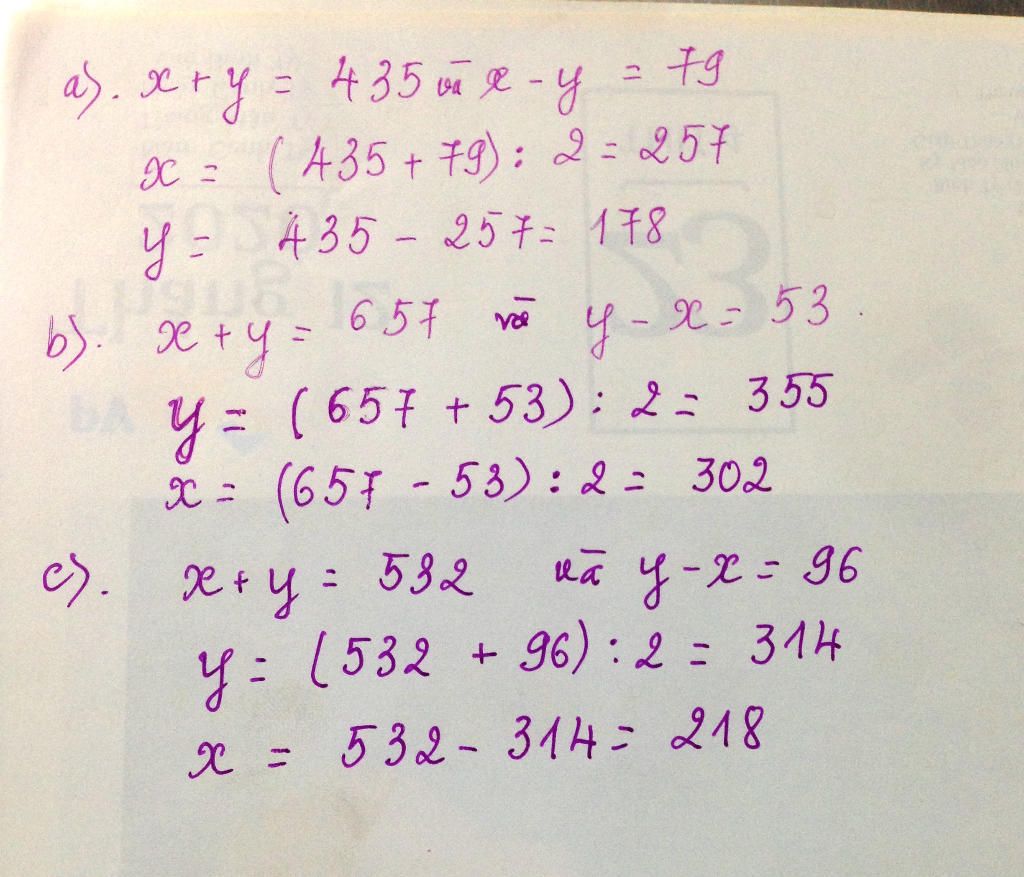 a). x + y = 435 và x - y = 79
x = (435 + 79) : 2 = 257
y = 435 - 257 = 178
b). x + y = 657 và y - x = 53.
y = (657 + 53) : 2 = 355
x = (657 - 53) : 2 = 302
c). x + y = 532 và y - x = 96
y = (532 + 96) : 2 = 314
x = 532 - 314 = 218